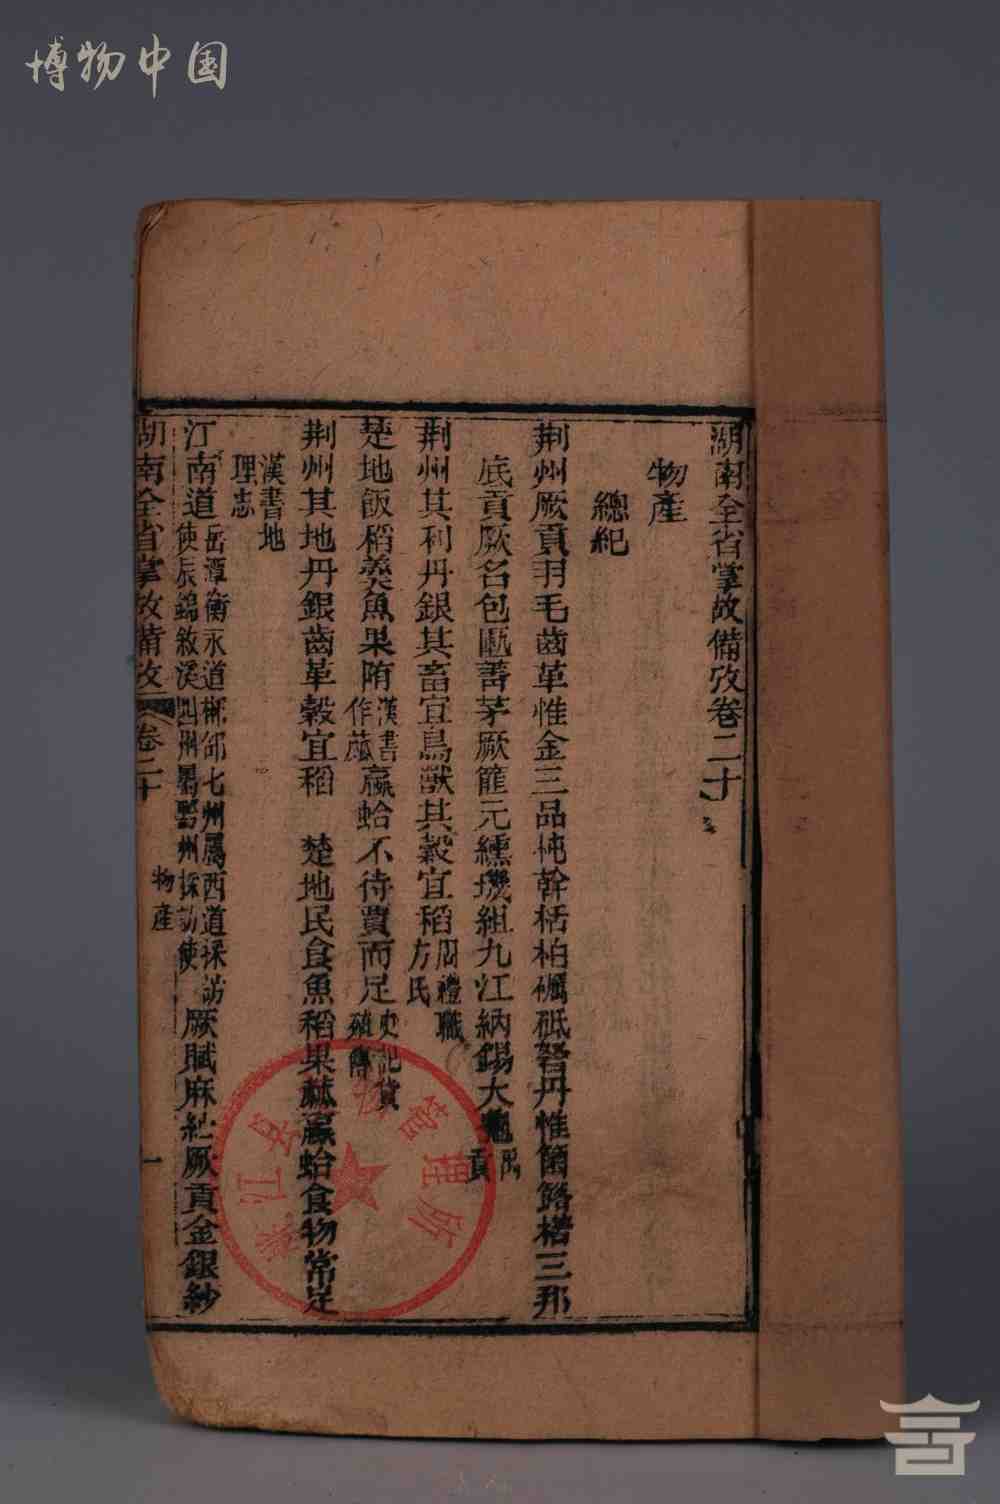 博物中国
湖南全省掌故備攷卷二十
物產
總紀
荆州厥貢羽毛齒革惟金三品杶幹栝柏礪砥砮丹惟箘簵楛三邦
底貢厥名包匭菁茅厥篚元纁璣組九江納錫大龜禹貢
荆州其利丹銀其畜宜鳥獸其穀宜稻周禮職方氏
楚地飯稻羹魚果陏漢書作蓏蠃蛤不待賈而足史記貨殖傳
荆州其地丹銀齒革穀宜稻　楚地民食魚稻果蓏蠃蛤食物常足
漢書地理志
江南道岳潭衡永道郴邵七州屬西道採訪使辰錦敘溪四州屬黔州採訪使厥賦麻紵厥貢金銀紗
湖南全省掌故備攷 卷二十 物產 一
江县物管理所